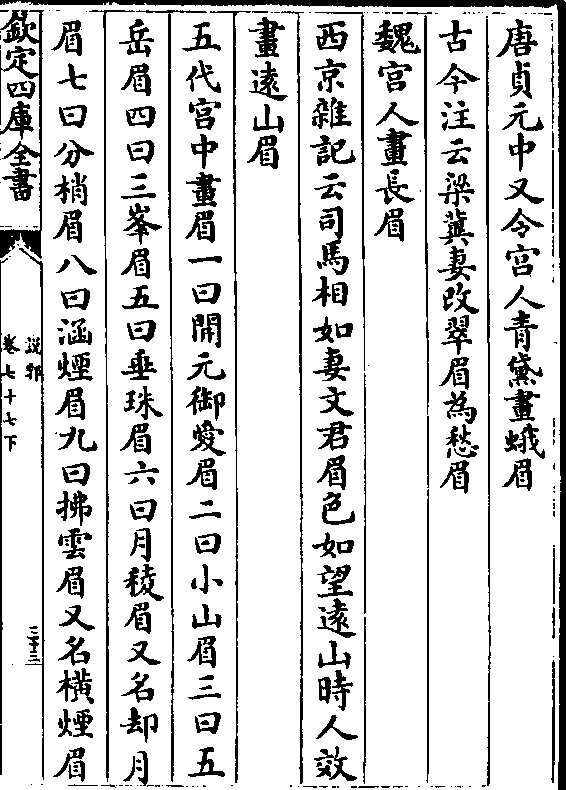 唐貞元中又令宫人青黛畫蛾眉
古今注云梁冀妻改翠眉為愁眉
魏宫人畫長眉
西京雜記云司馬相如妻文君眉色如望逺山時人效
畫逺山眉
五代宫中畫眉一曰開元御愛眉二曰小山眉三曰五
岳眉四曰三峯眉五曰垂珠眉六曰月稜眉又名却月
眉七曰分梢眉八曰涵煙眉九曰拂雲眉又名橫煙眉
欽定四庫全書
說郛
卷七十七下
三十三